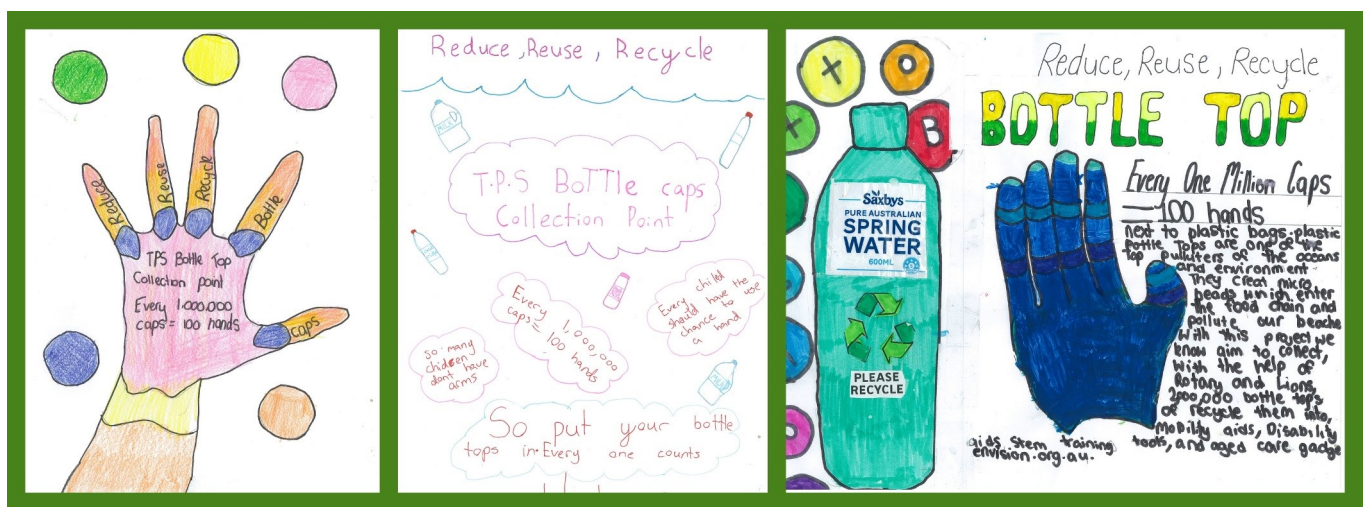 Reduce
Reuse
Recycle
Bottle
caps
TPS Bottle Top
Collection point
Every 1,000,000
caps = 100 hands
Reduce, Reuse, Recycle
MILK
T.P.S BoTTle caps
Collection Point
Every 1,000,000
caps = 100 hands
Every child
should have the
chance to use
a hand
so many
children
dont have
arms
So put your bottle
tops in. Every one counts
X
O
B
Saxbys
PURE AUSTRALIAN
SPRING
WATER
600ML
PLEASE
RECYCLE
Reduce, Reuse, Recycle
BOTTLE TOP
Every One Million Caps
= 100 hands
next to plastic bags, plastic
bottle Tops are one of the
top pulluters of the oceans
and environment
They creat micro
beads which enter
the food chain and
pollute our beache
With this project we
know aim to collect,
with the help of
Rotary and Lions,
200,000 bottle tops
of recycle them into,
Mobility aids, Disability
aids, Stem training tools, and aged care gadge
envision.org.au.